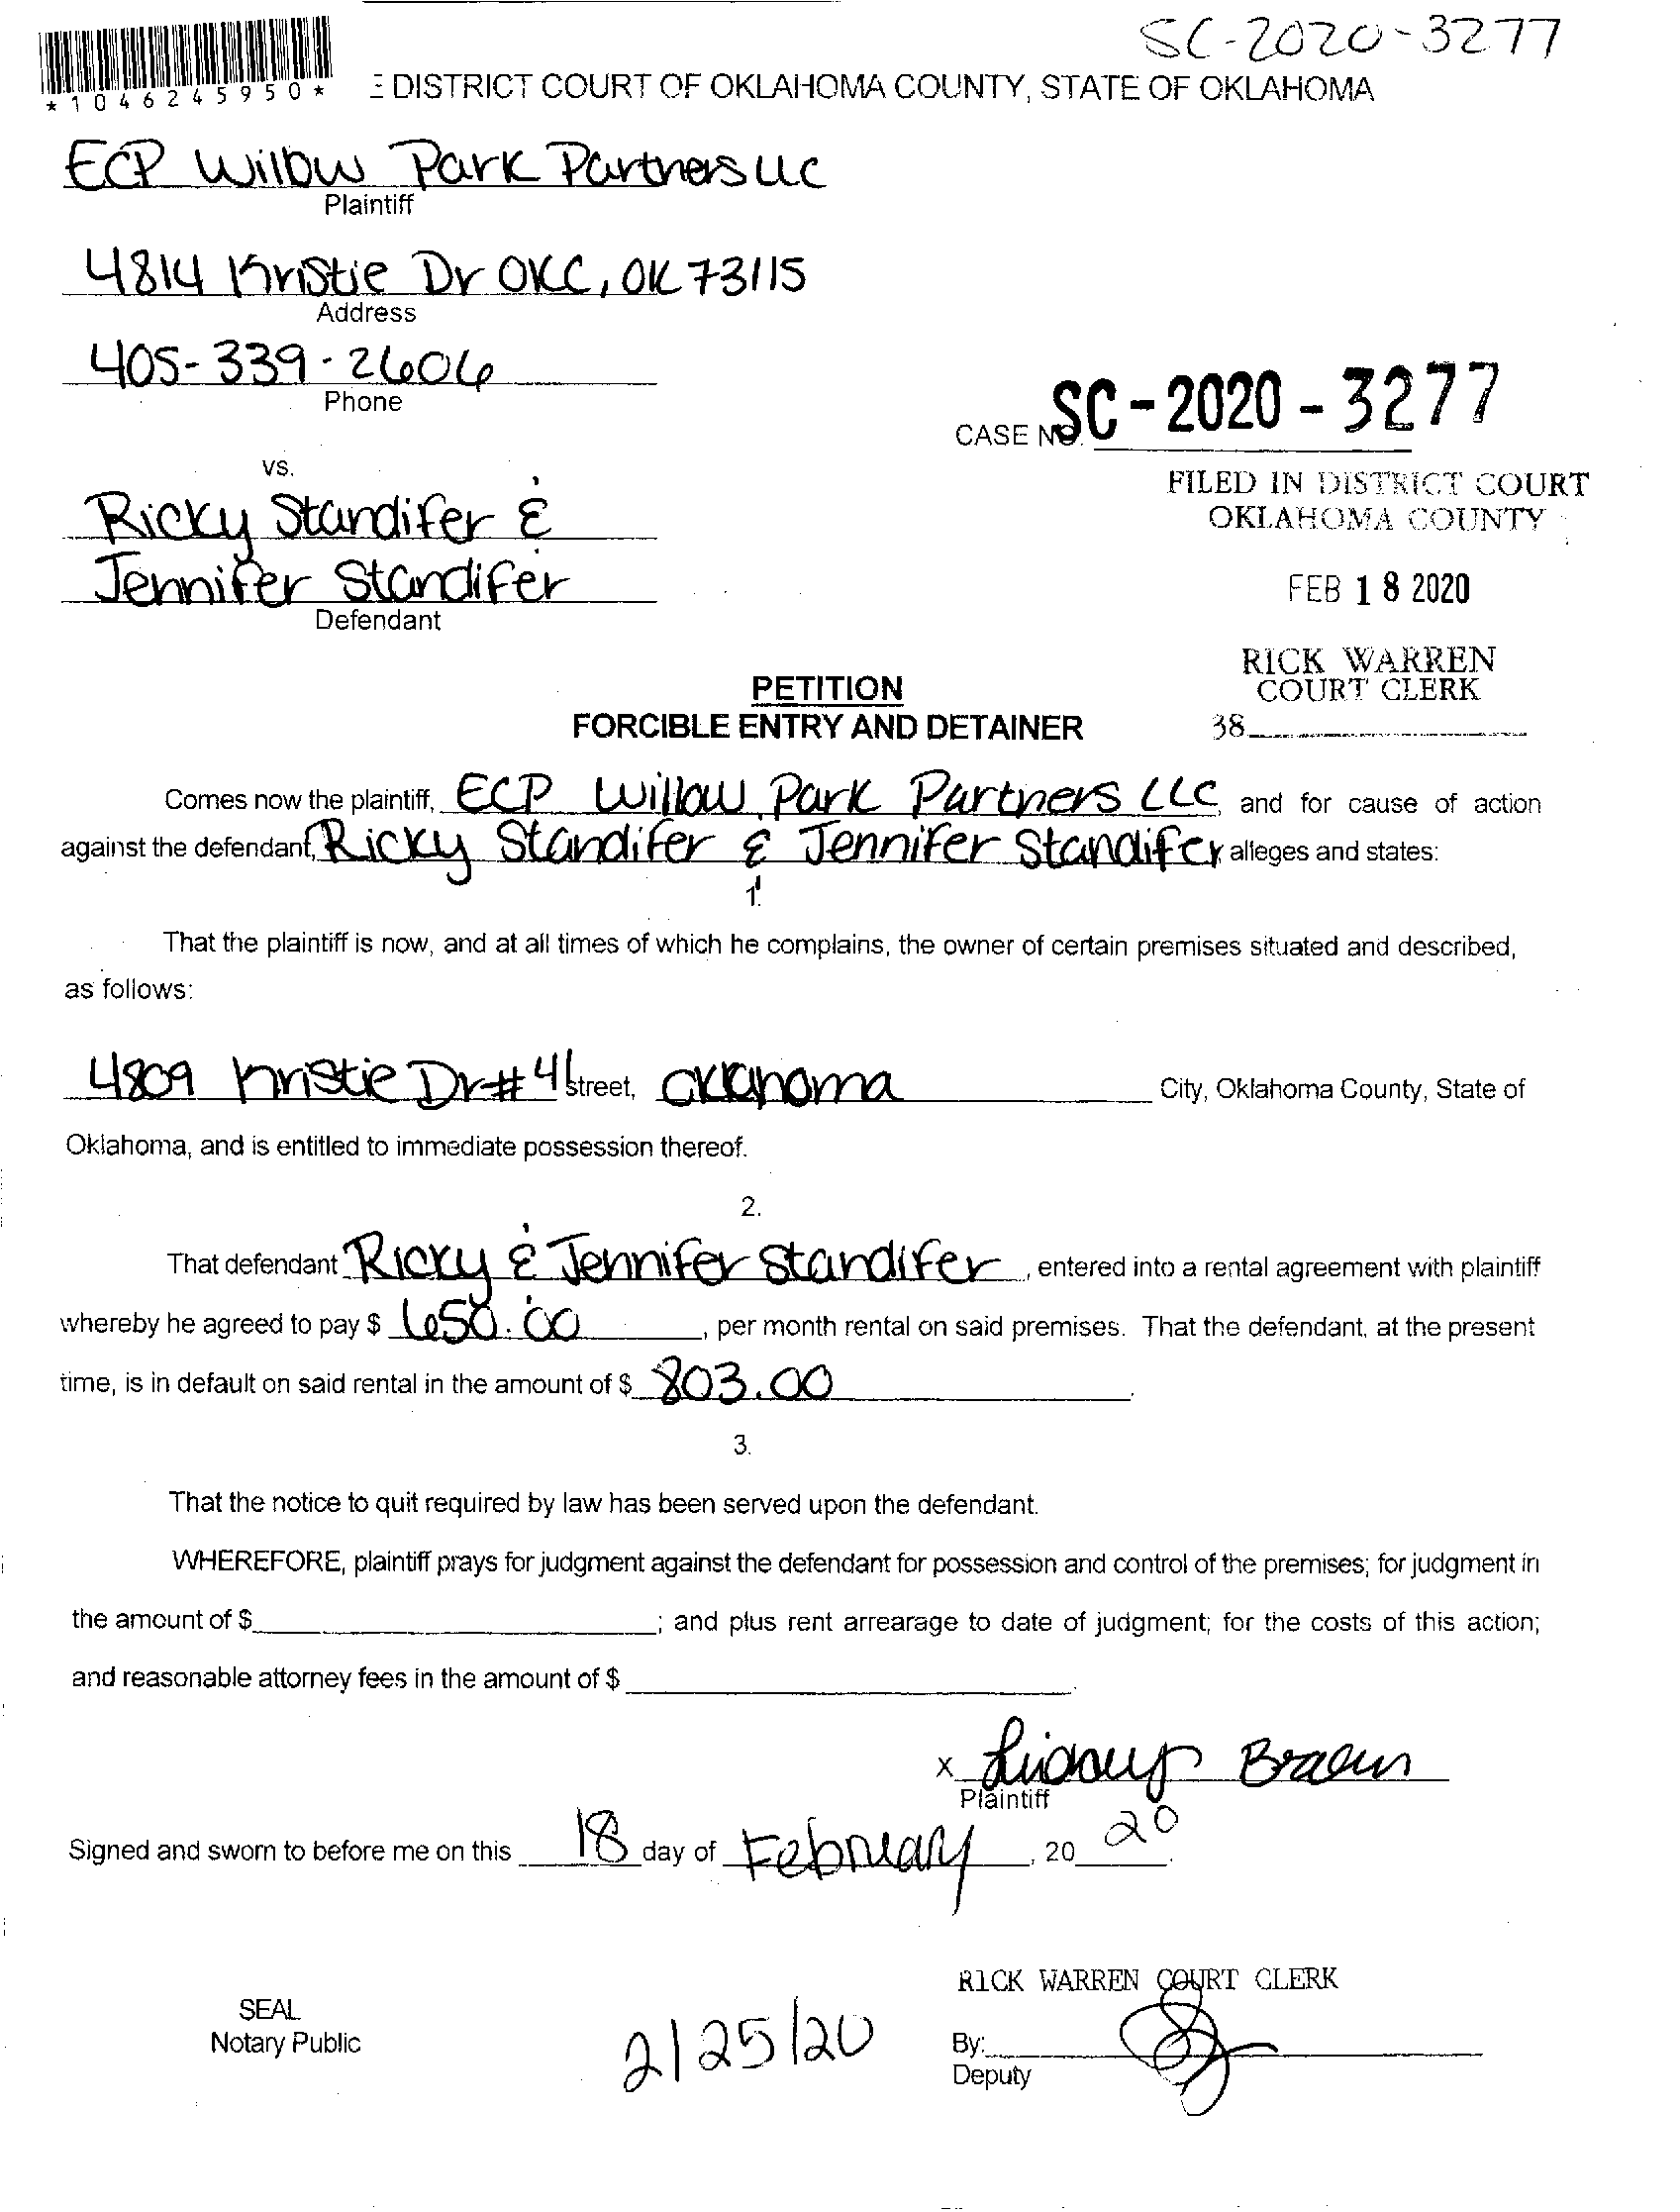 SC-2020-3277
*1046245950*
E DISTRICT COURT OF OKLAHOMA COUNTY, STATE OF OKLAHOMA
ECP Willow Park Partners LLC
Plaintiff
4814 Kristie Dr OKC, OK 73115
Address
405-339-2606
Phone
CASE NO. SC-2020-3277
vs.
FILED IN DISTRICT COURT
OKLAHOMA COUNTY
Ricky Standifer &
Jennifer Standifer
Defendant
FEB 18 2020
RICK WARREN
COURT CLERK
38
PETITION
FORCIBLE ENTRY AND DETAINER
Comes now the plaintiff, ECP Willow Park Partners LLC, and for cause of action
against the defendant, Ricky Standifer & Jennifer Standifer alleges and states:
1.
That the plaintiff is now, and at all times of which he complains, the owner of certain premises situated and described,
as follows:
4809 Kristie Dr #41 street, Oklahoma City, Oklahoma County, State of
Oklahoma, and is entitled to immediate possession thereof.
2.
That defendant Ricky & Jennifer Standifer, entered into a rental agreement with plaintiff
whereby he agreed to pay $ 650.00, per month rental on said premises. That the defendant, at the present
time, is in default on said rental in the amount of $ 803.00.
3.
That the notice to quit required by law has been served upon the defendant.
WHEREFORE, plaintiff prays for judgment against the defendant for possession and control of the premises; for judgment in
the amount of $ ; and plus rent arrearage to date of judgment; for the costs of this action;
and reasonable attorney fees in the amount of $ .
x
Plaintiff
Signed and sworn to before me on this 18 day of February, 20 20.
RICK WARREN COURT CLERK
SEAL
Notary Public
2/25/20
By:
Deputy